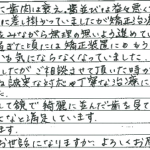 に歯肉は衰え、歯並びは益々悪く
に差し掛かっていましたが矯正治
みながら無理の無いよう進めて
まずた頃には矯正装置にもす
も気にならなくなっていました。
したがご相談させて頂いた時か
誠実な対応や丁寧な治療に
た。
して鏡で綺麗に並んだ歯を見て
てなと満足しています。
ます。
お世話になりますが、よろしくお願